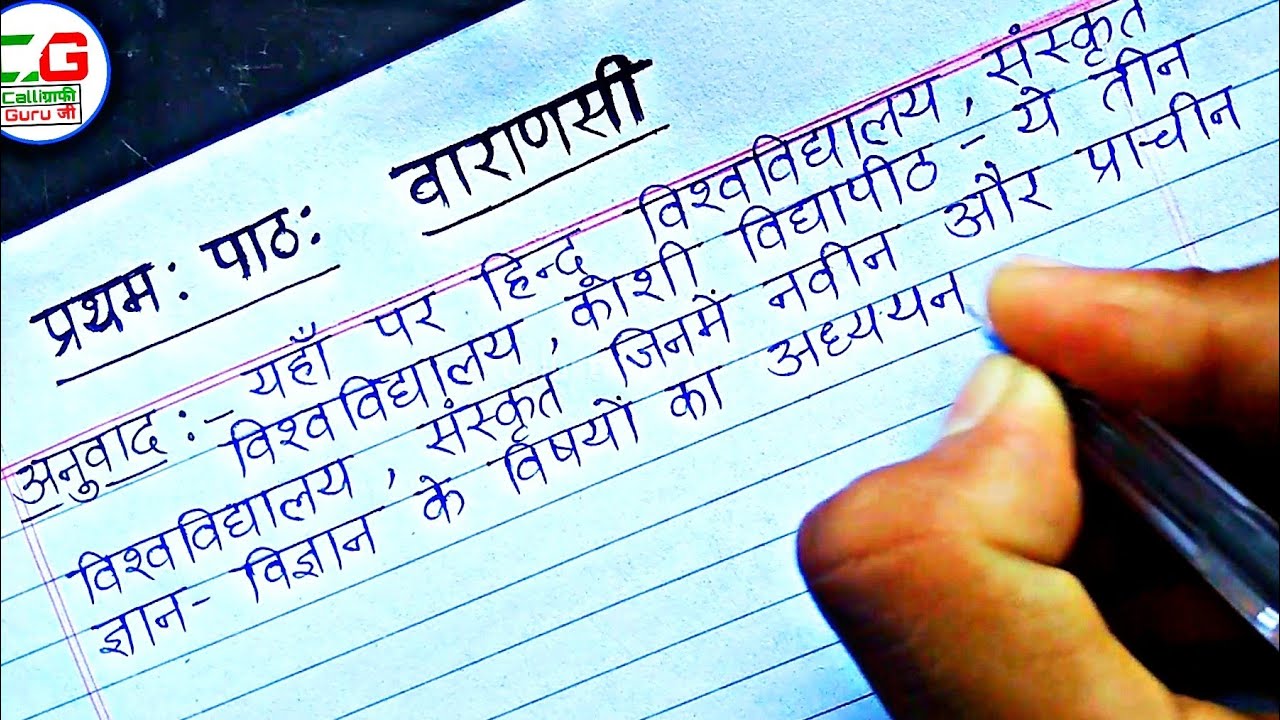 CG
Calliग्राफी
Guru जी
प्रथम: पाठ: वाराणसी
अनुवाद :- यहाँ पर हिन्दू विश्वविद्यालय, संस्कृत
विश्वविद्यालय, काशी विद्यापीठ - ये तीन
विश्वविद्यालय, संस्कृत जिनमें नवीन और प्राचीन
ज्ञान- विज्ञान के विषयों का अध्ययन